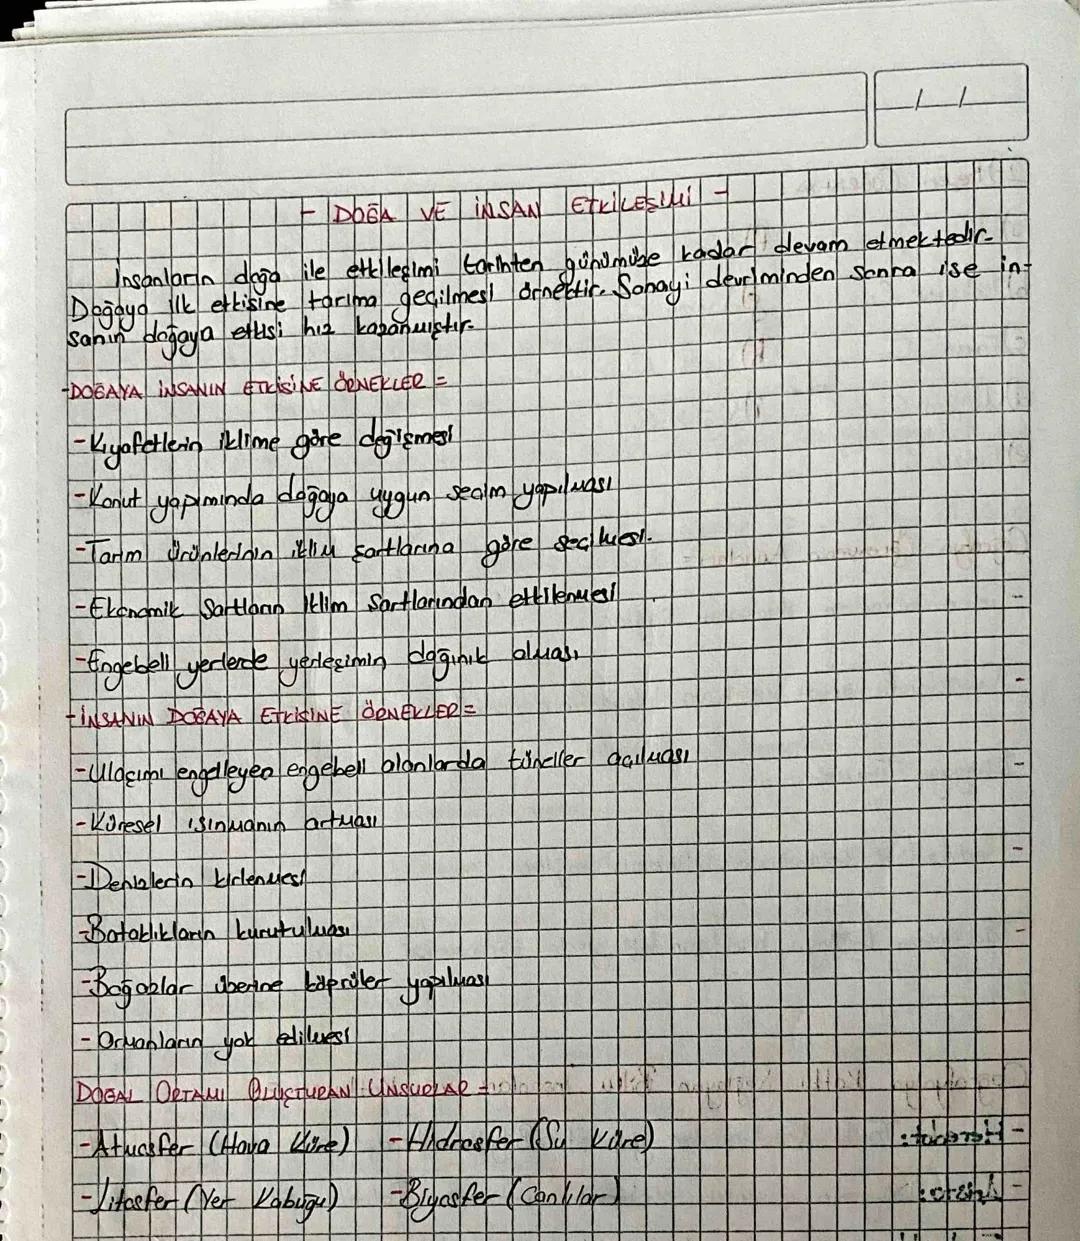 - DOĞA VE İNSAN ETKİLEŞİMİ -
İnsanların doğa ile etkileşimi tarihten günümüze kadar devam etmektedir.
Doğaya ilk etkisine tarıma geçilmesi örnektir. Sanayi devriminden sonra ise in-
sanın doğaya etkisi hız kazanmıştır.
-DOĞAYA İNSANIN ETKİSİNE ÖRNEKLER =
-Kıyafetlerin iklime göre değişmesi
-Konut yapımında doğaya uygun seçim yapılması
-Tarım ürünlerinin iklim şartlarına göre seçilmesi.
-Ekonomik Şartların İklim Şartlarından etkilenmesi
-Engebeli yerlerde yerleşimin dağınık olması
-İNSANIN DOĞAYA ETKİSİNE ÖRNEKLER =
-Ulaşımı engelleyen engebeli alanlarda tüneller açılması
-Küresel ısınmanın artması
-Denizlerin kirlenmesi
-Bataklıkların kurutulması
-Boğazlar üzerine köprüler yapılması
-Ormanların yok edilmesi
DOĞAL ORTAMI OLUŞTURAN UNSURLAR =
-Atmosfer (Hava Küre) -Hidrosfer (Su Küre)
-Litosfer (Yer Kabuğu) -Biyosfer (Canlılar)